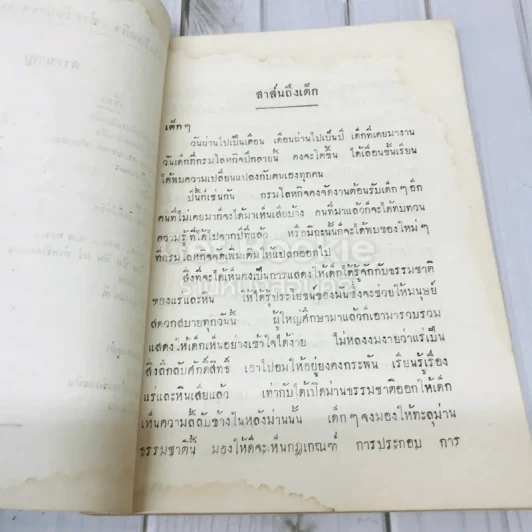 สาส์นถึงเด็ก
เด็กๆ
วันผ่านไปเป็นเดือน เดือนผ่านไปเป็นปี เด็กที่เคยมางาน
วันเด็กที่กรมโลหกิจปีกลายนี้ คงจะโตขึ้น ได้เลื่อนชั้นเรียน
ได้พบความเปลี่ยนแปลงกับตนเองทุกคน
ปีนี้ก็เช่นกัน กรมโลหกิจคงจัดงานต้อนรับเด็กๆ อีก
คนที่ไม่เคยมาก็จะได้มาเห็นเสียบ้าง คนที่มาแล้วก็จะได้ทบทวน
ความรู้ที่ได้ไปจากปีที่แล้ว หรือมิฉะนั้นก็จะได้พบของใหม่ๆ
ที่กรมโลหกิจจัดเพิ่มเติมให้แปลกออกไป
สิ่งที่จะได้เห็นคงเป็นการแสดงให้เด็กได้รู้จักกับธรรมชาติ
ของแร่และหิน ให้ได้รู้ประโยชน์ของมันซึ่งจะช่วยให้มนุษย์
สดวกสบายทุกวันนี้ ผู้ใหญ่ศึกษามาแล้วก็เอามารวบรวม
แสดงให้เด็กเห็นอย่างเข้าใจได้ง่าย ไม่หลงงมงายว่าแร่เป็น
สิ่งลึกลับศักดิ์สิทธิ์ เอาไปอมให้อยู่ยงคงกระพัน เรียนรู้เรื่อง
แร่และหินเสียแล้ว เท่ากับได้เปิดม่านธรรมชาติออกให้เด็ก
เห็นความลี้ลับข้างในหลังม่านนั้น เด็กๆ จงมองให้ทะลุม่าน
ธรรมชาตินี้ มองให้ดีจะเห็นกฎเกณฑ์ การประกอบ การ